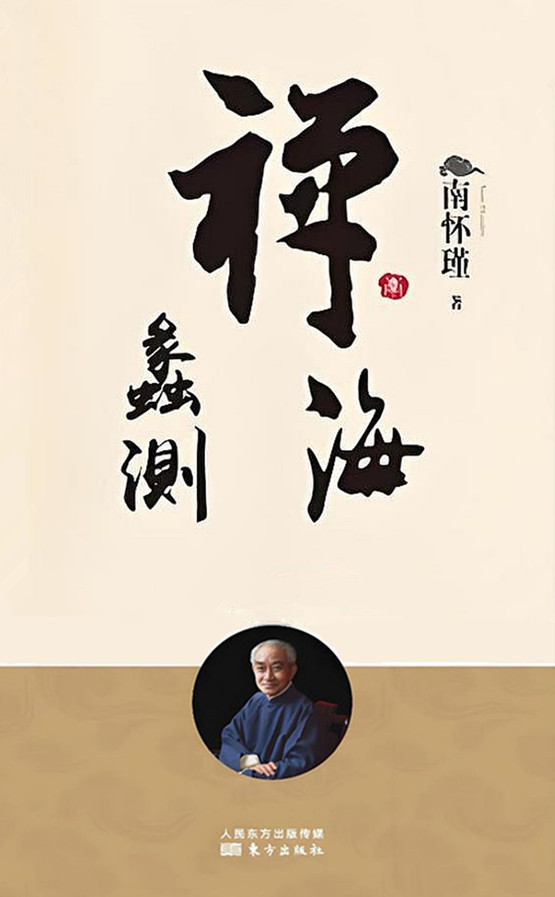 禅海
蠡测
南怀瑾 著
人民东方出版传媒
东方出版社